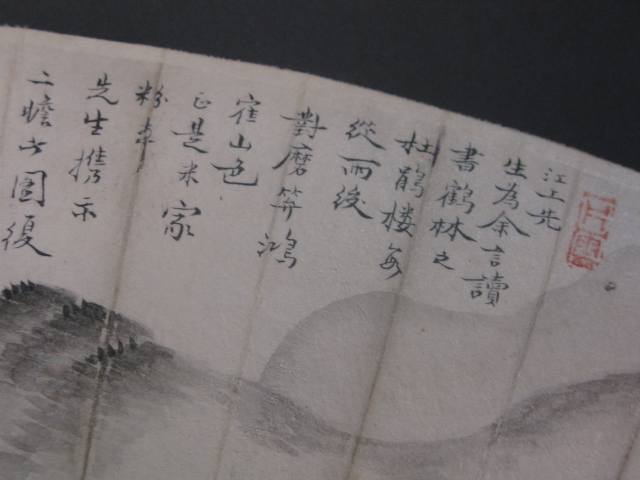 江上先
生為余言讀
書鶴林之
杜鵑楼每
從雨後
對磨笄鴻
寉山色
正是米家
粉本
先生攜示
二瞻此圖復